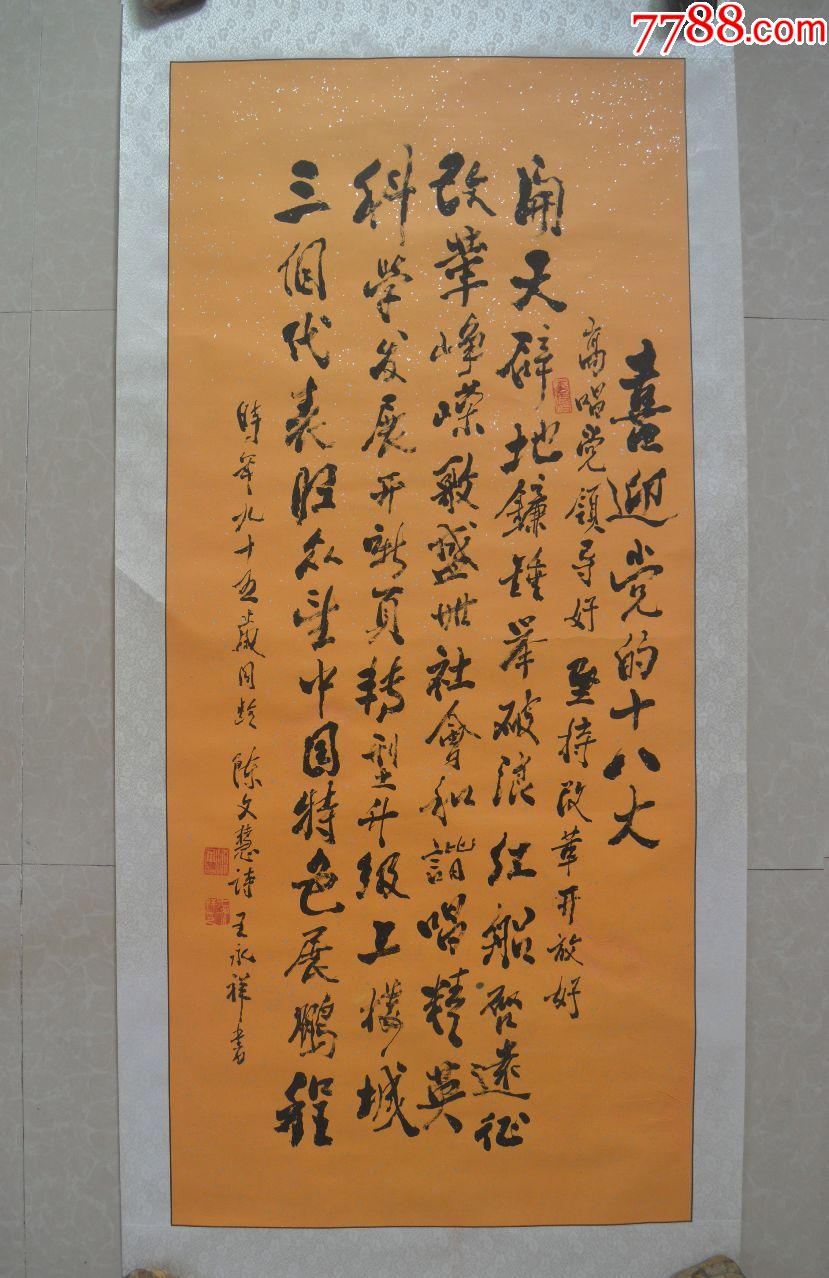 7788.com
喜迎党的十八大
高唱党领导好 坚持改革开放好
開天辟地鐮锤举破浪红船啓遠征
改革峥嵘歌盛世社會和諧唱精英
科学发展开新頁轉型升级上楼城
三個代表旺众望中国特色展鹏程
時年九十五歲同龄 陈文慧诗 王永祥書